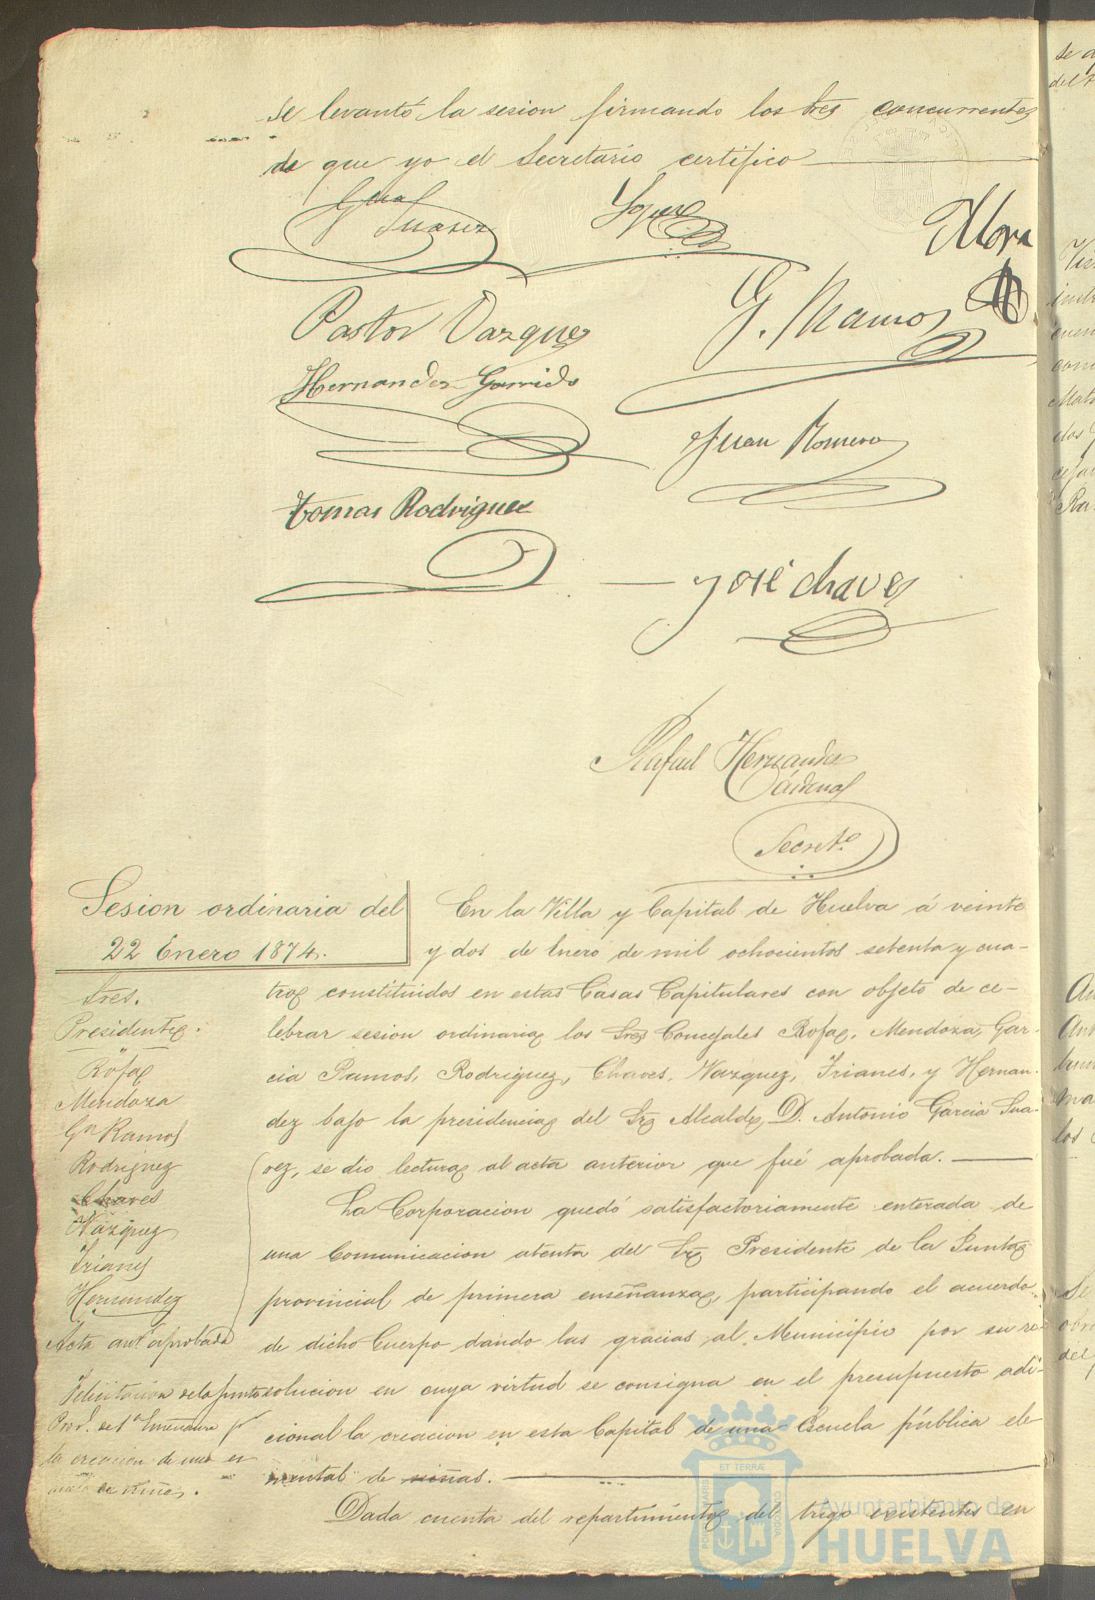 se levantó la sesion firmando los Sres concurrentes
de que yo el Secretario certifico
Gcia Suarez
Mora
Pastor Vazquez
G. Ramos
Hernandez Garrido
Juan Romero
Tomas Rodriguez
José Chaves
Rafael Hernandez
Cárdenas
Secreto
Sesion ordinaria del
22 Enero 1874.
Sres.
Presidente.
Rofa
Mendoza
Ga Ramos
Rodriguez
Chaves
Vazquez
Trianes
Hernandez
Acta antr aprobada
Felicitacion de la Junta
Prov. de 1a Enseñanza pr
la creacion de una es
cuela de niñas.
En la Villa y Capital de Huelva á veinte
y dos de Enero de mil ochocientos setenta y cua-
tro constituidos en estas Casas Capitulares con objeto de ce-
lebrar sesion ordinaria los Sres Concejales Rofa, Mendoza, Gar-
cia Ramos, Rodriguez, Chaves, Vazquez, Trianes, y Hernan-
dez bajo la presidencia del Sr Alcalde D. Antonio Garcia Sua-
rez, se dio lectura al acta anterior que fué aprobada.
La Corporacion quedó satisfactoriamente enterada de
una Comunicacion atenta del Sr Presidente de la Junta
provincial de primera enseñanza, participando el acuerdo
de dicho Cuerpo dando las gracias al Municipio por su re-
solucion en cuya virtud se consigna en el presupuesto adi-
cional la creacion en esta Capital de una Escuela pública ele
mental de niñas.
Dada cuenta del repartimiento del trigo existentes en
Ayuntamiento de
HUELVA